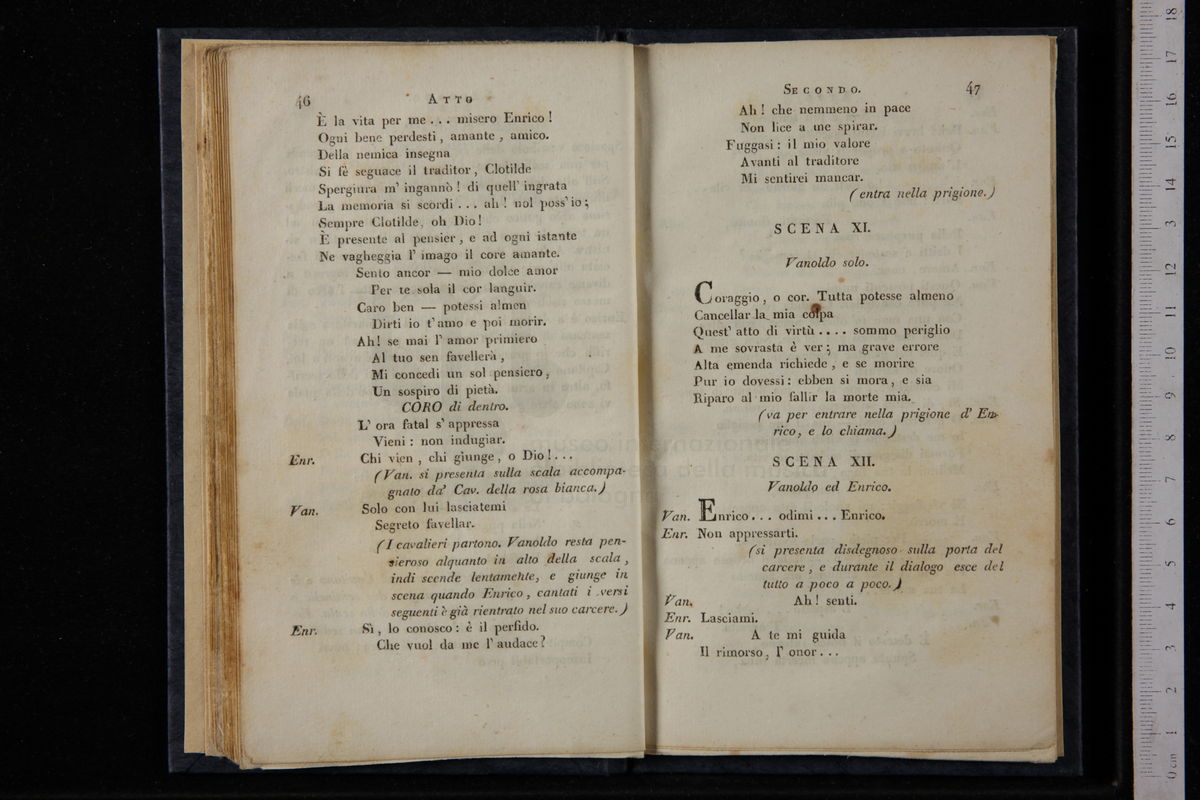 46 ATTO
È la vita per me . . . misero Enrico !
Ogni bene perdesti , amante , amico.
Della nemica insegna
Si fè seguace il traditor , Clotilde
Spergiura m' ingannò ! di quell' ingrata
La memoria si scordi . . . ah ! nol poss' io ;
Sempre Clotilde, oh Dio !
È presente al pensier , e ad ogni istante
Ne vagheggia l' imago il core amante.
Sento ancor — mio dolce amor
Per te sola il cor languir.
Caro ben — potessi almen
Dirti io t' amo e poi morir.
Ah ! se mai l' amor primiero
Al tuo sen favellerà ,
Mi concedi un sol pensiero ,
Un sospiro di pietà.
CORO di dentro.
L' ora fatal s' appressa
Vieni : non indugiar.
Enr. Chi vien , chi giunge , o Dio ! . . .
( Van. si presenta sulla scala accompa-
gnato da' Cav. della rosa bianca. )
Van. Solo con lui lasciatemi
Segreto favellar.
( I cavalieri partono. Vanoldo resta pen-
sieroso alquanto in alto della scala ,
indi scende lentamente, e giunge in
scena quando Enrico , cantati i versi
seguenti è già rientrato nel suo carcere. )
Enr. Sì , lo conosco : è il perfido.
Che vuol da me l' audace ?
SECONDO. 47
Ah ! che nemmeno in pace
Non lice a me spirar.
Fuggasi : il mio valore
Avanti al traditore
Mi sentirei mancar.
( entra nella prigione. )
SCENA XI.
Vanoldo solo.
Coraggio , o cor. Tutta potesse almeno
Cancellar la mia colpa
Quest' atto di virtù . . . . sommo periglio
A me sovrasta è ver ; ma grave errore
Alta emenda richiede , e se morire
Pur io dovessi : ebben si mora , e sia
Riparo al mio fallir la morte mia.
( va per entrare nella prigione d' En-
rico, e lo chiama. )
SCENA XII.
Vanoldo ed Enrico.
Van. Enrico . . . odimi . . . Enrico.
Enr. Non appressarti.
( si presenta disdegnoso sulla porta del
carcere , e durante il dialogo esce del
tutto a poco a poco. )
Van. Ah ! senti.
Enr. Lasciami.
Van. A te mi guida
Il rimorso , l' onor . . .
museo internazionale
della musica
0 cm 1 2 3 4 5 6 7 8 9 10 11 12 13 14 15 16 17 18